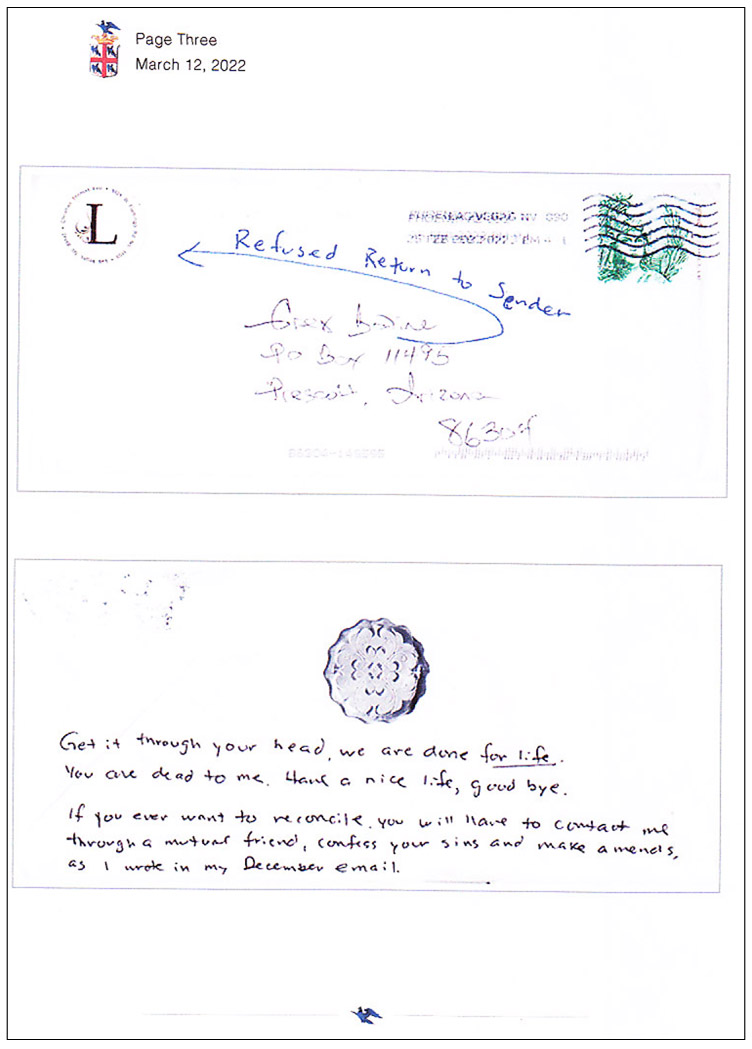 Page Three
March 12, 2022
L
Refused Return to Sender
PO Box 11495
Prescott, Arizona
86304
Get it through your head, we are done for life.
You are dead to me. Have a nice life, good bye.
If you ever want to reconcile, you will have to contact me
through a mutual friend, confess your sins and make amends,
as I wrote in my December email.